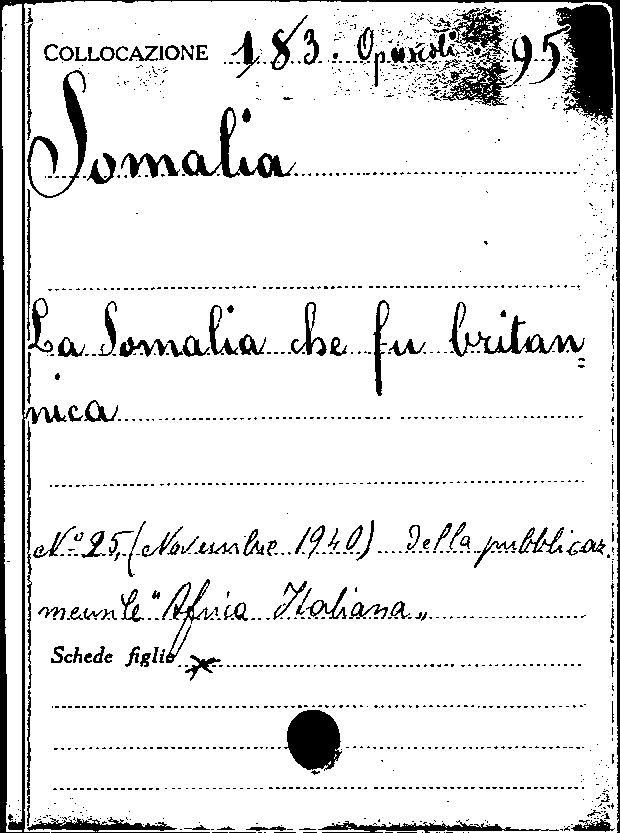 COLLOCAZIONE 183. Opuscoli. 95
Somalia
La Somalia che fu britan=
nica
Nº 25, (Novembre 1940) della pubblicaz.
mensile "Africa Italiana„
Schede figlie